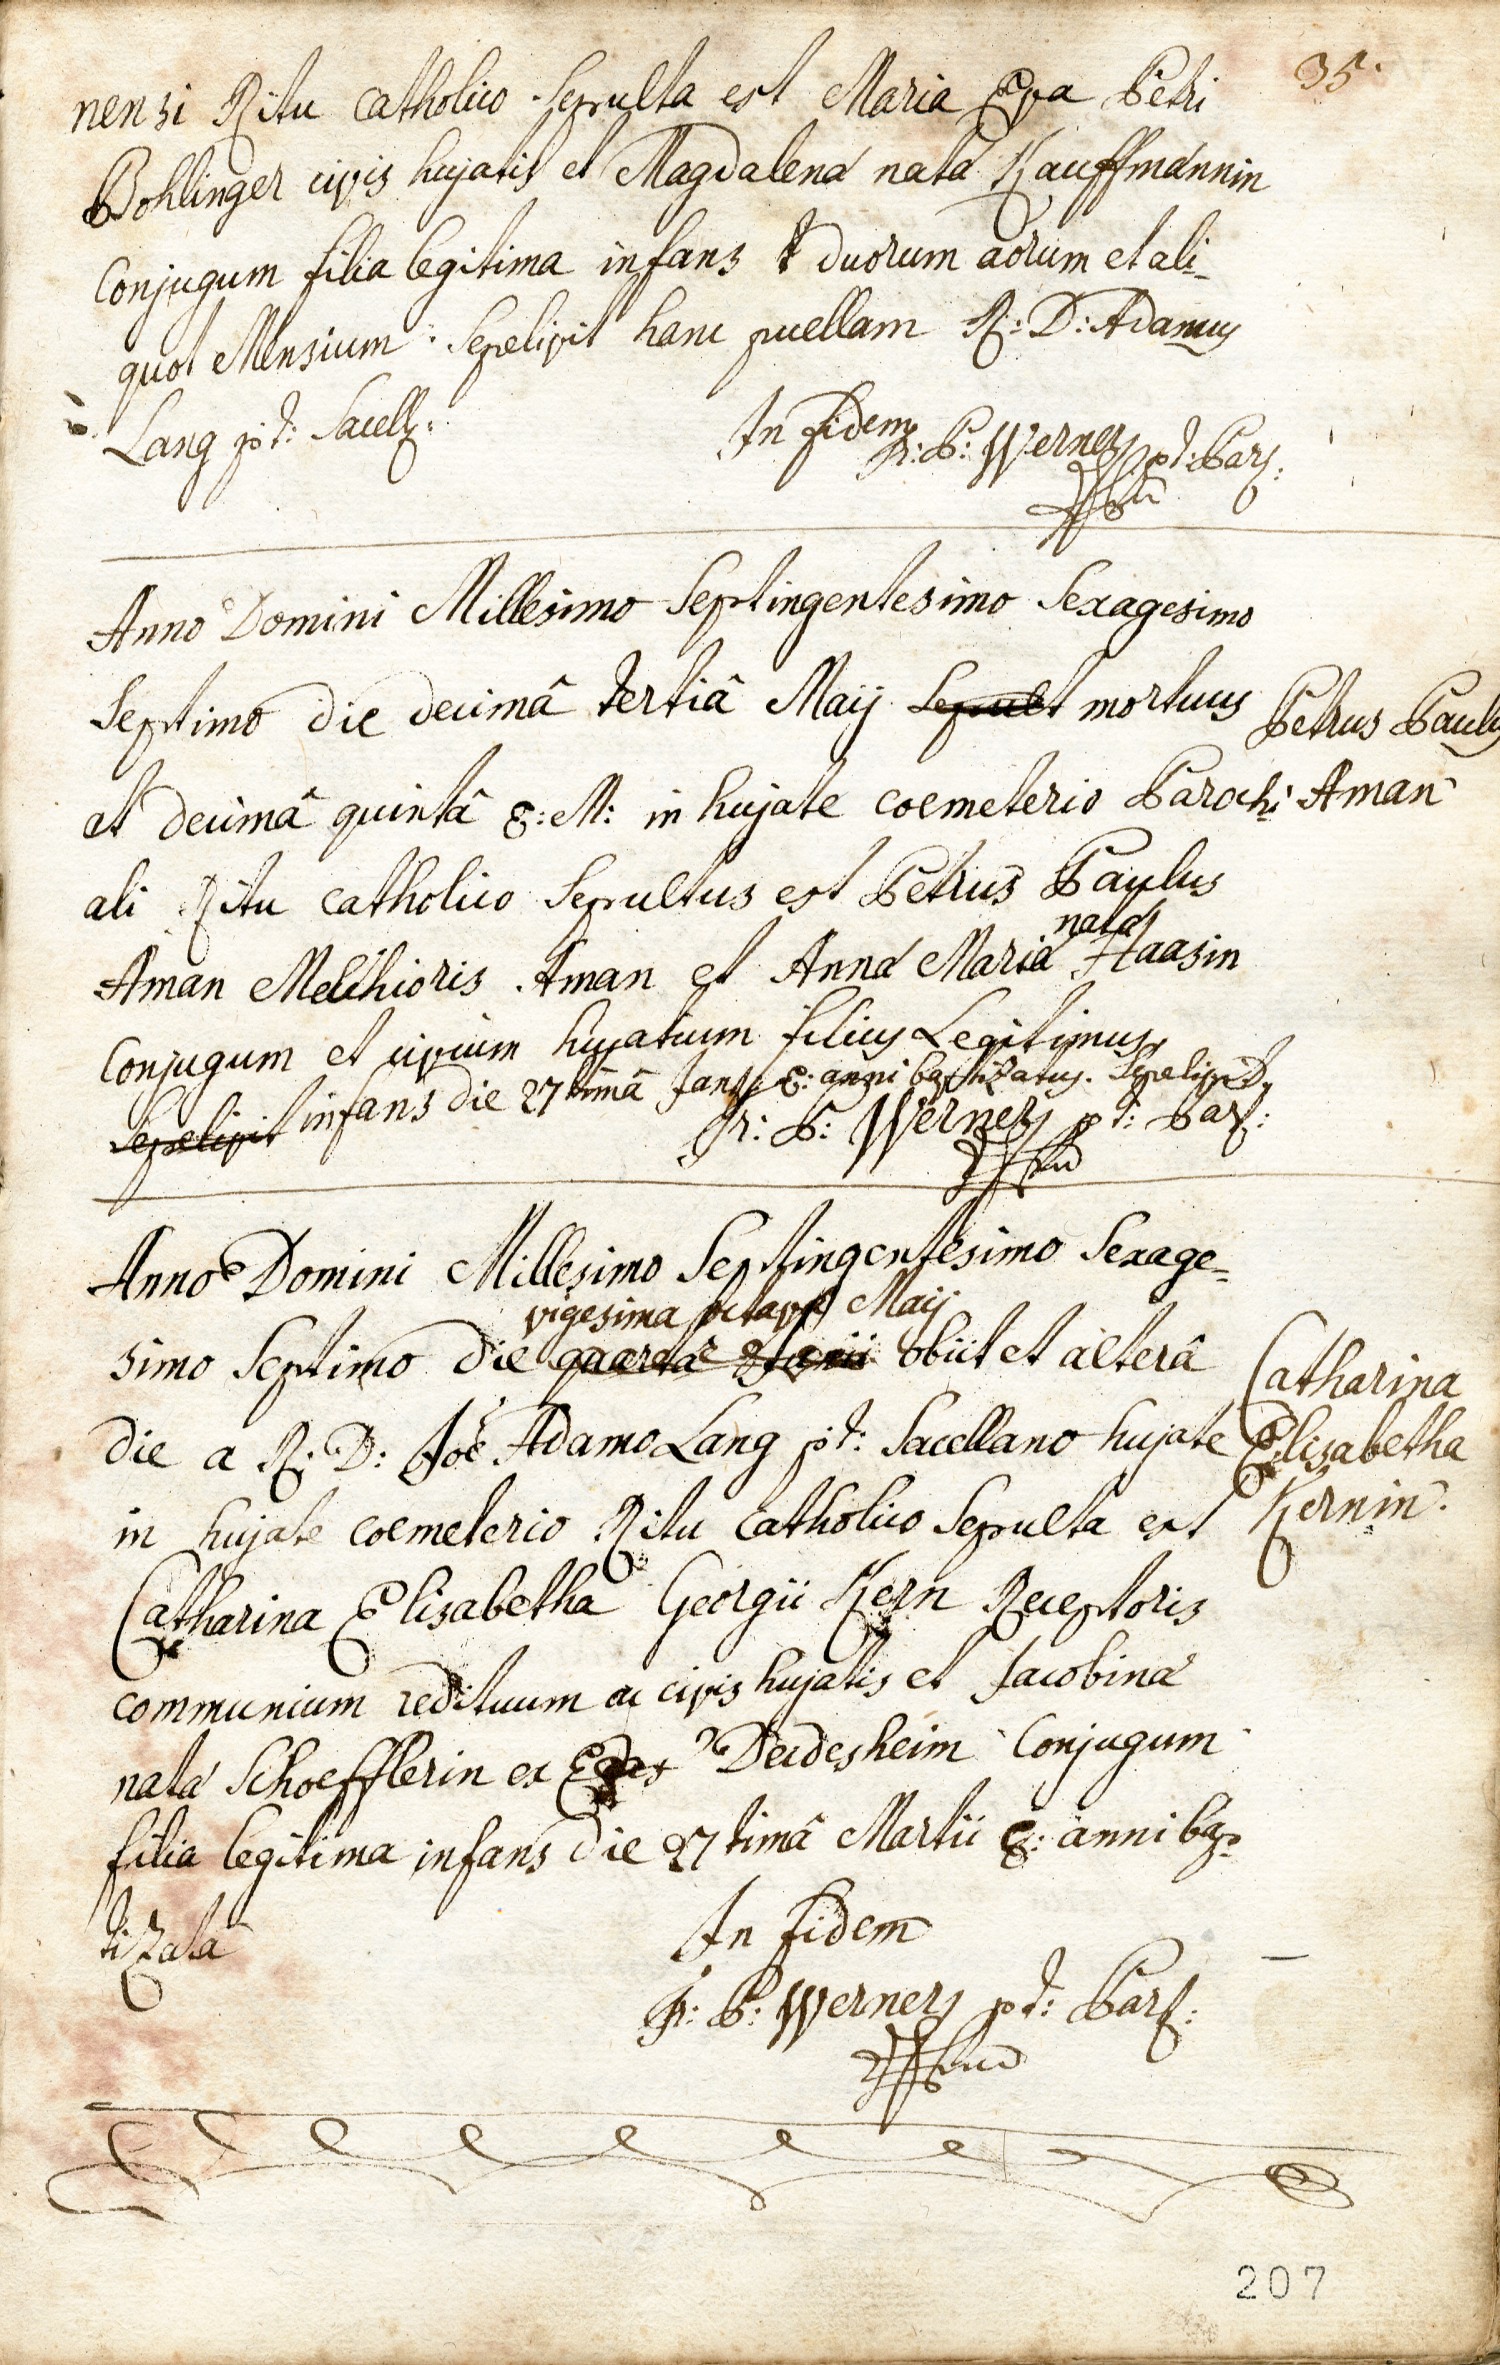 35.
nensi Ritu Catholico Sepulta est Maria Eva Petri
Bohlinger civis hujatis et Magdalena nata Kauffmannin
Conjugum filia legitima infans duorum aorum et ali-
quot Mensium. Sepelivit hanc puellam R: D: Adamus
Lang p t: Sacell:
In fidem
Fr: P: Werner p t: Par:
Anno Domini Millesimo Septingentesimo Sexagesimo
Septimo die decimâ tertiâ Maij Sepult mortuus
Petrus Paulus
et decimâ quintâ E: M: in hujate coemeterio Parochi
Aman
ali Ritu Catholico Sepultus est Petrus Paulus
Aman Melchioris Aman et Anna Maria nata Haasin
Conjugum et civium hujatium filius Legitimus
Sepelivit infans die 27timâ Jan: E: anni baptizatus. Sepelivit
Fr: P: Werner p t: Par:
Anno Domini Millesimo Septingentesimo Sexage-
vigesima octava Maij
simo Septimo die quarta Junii obiit et alterâ
Catharina
die a R: D: Joe Adamo Lang p t: Sacellano hujate
Elisabetha
in hujate coemeterio Ritu Catholico Sepulta est
Kernin.
Catharina Elisabetha Georgii Kern Receptoris
communium redituum ac civis hujatis et Jacobina
nata Schoefflerin ex Deidesheim Conjugum
filia legitima infans die 27timâ Martii E: anni bap-
tizata
In fidem
Fr: P: Werner p t: Par:
207